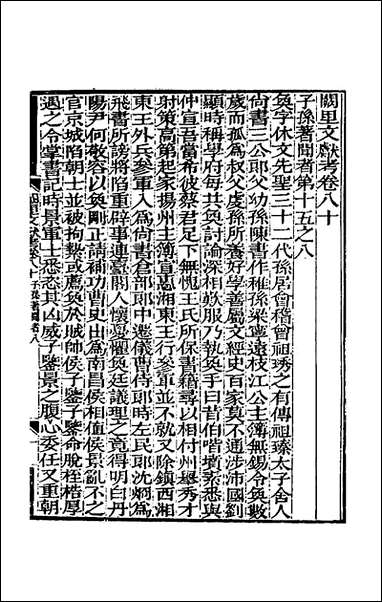 闕里文獻考卷八十
子孫著聞者第十五之八
奐字休文先聖三十二代孫居會稽曾祖琇之有傳祖臻太子舍人
尚書三公郎父幼孫陳書作稚孫梁寧遠枝江公主簿無錫令奐數
歲而孤為叔父虔孫所養好學善屬文經史百家莫不通涉沛國劉
顯時稱學府每共奐討論深相歎服乃執奐手曰昔伯喈墳素悉與
仲宣吾當希彼蔡君足下無愧王氏所保書籍尋以相付州舉秀才
射策高第起家揚州主簿宣惠湘東王行參軍並不就又除鎮西湘
東王外兵參軍入為尚書倉部郎中遷儀曹侍郎時左民郎沈烱為
飛書所謗將陷重辟事連臺閣人懷憂懼奐廷議理之竟得明白丹
陽尹何敬容以奐剛正請補功曹史出為南昌侯相值侯景亂不之
官京城陷朝士並被拘縶或薦奐於賊帥侯子鑒子鑒命脫桎梏厚
遇之令掌書記時景軍士悉恣其凶威子鑒景之腹心委任又重朝
闕里文獻考卷八十 子孫著聞者八 一